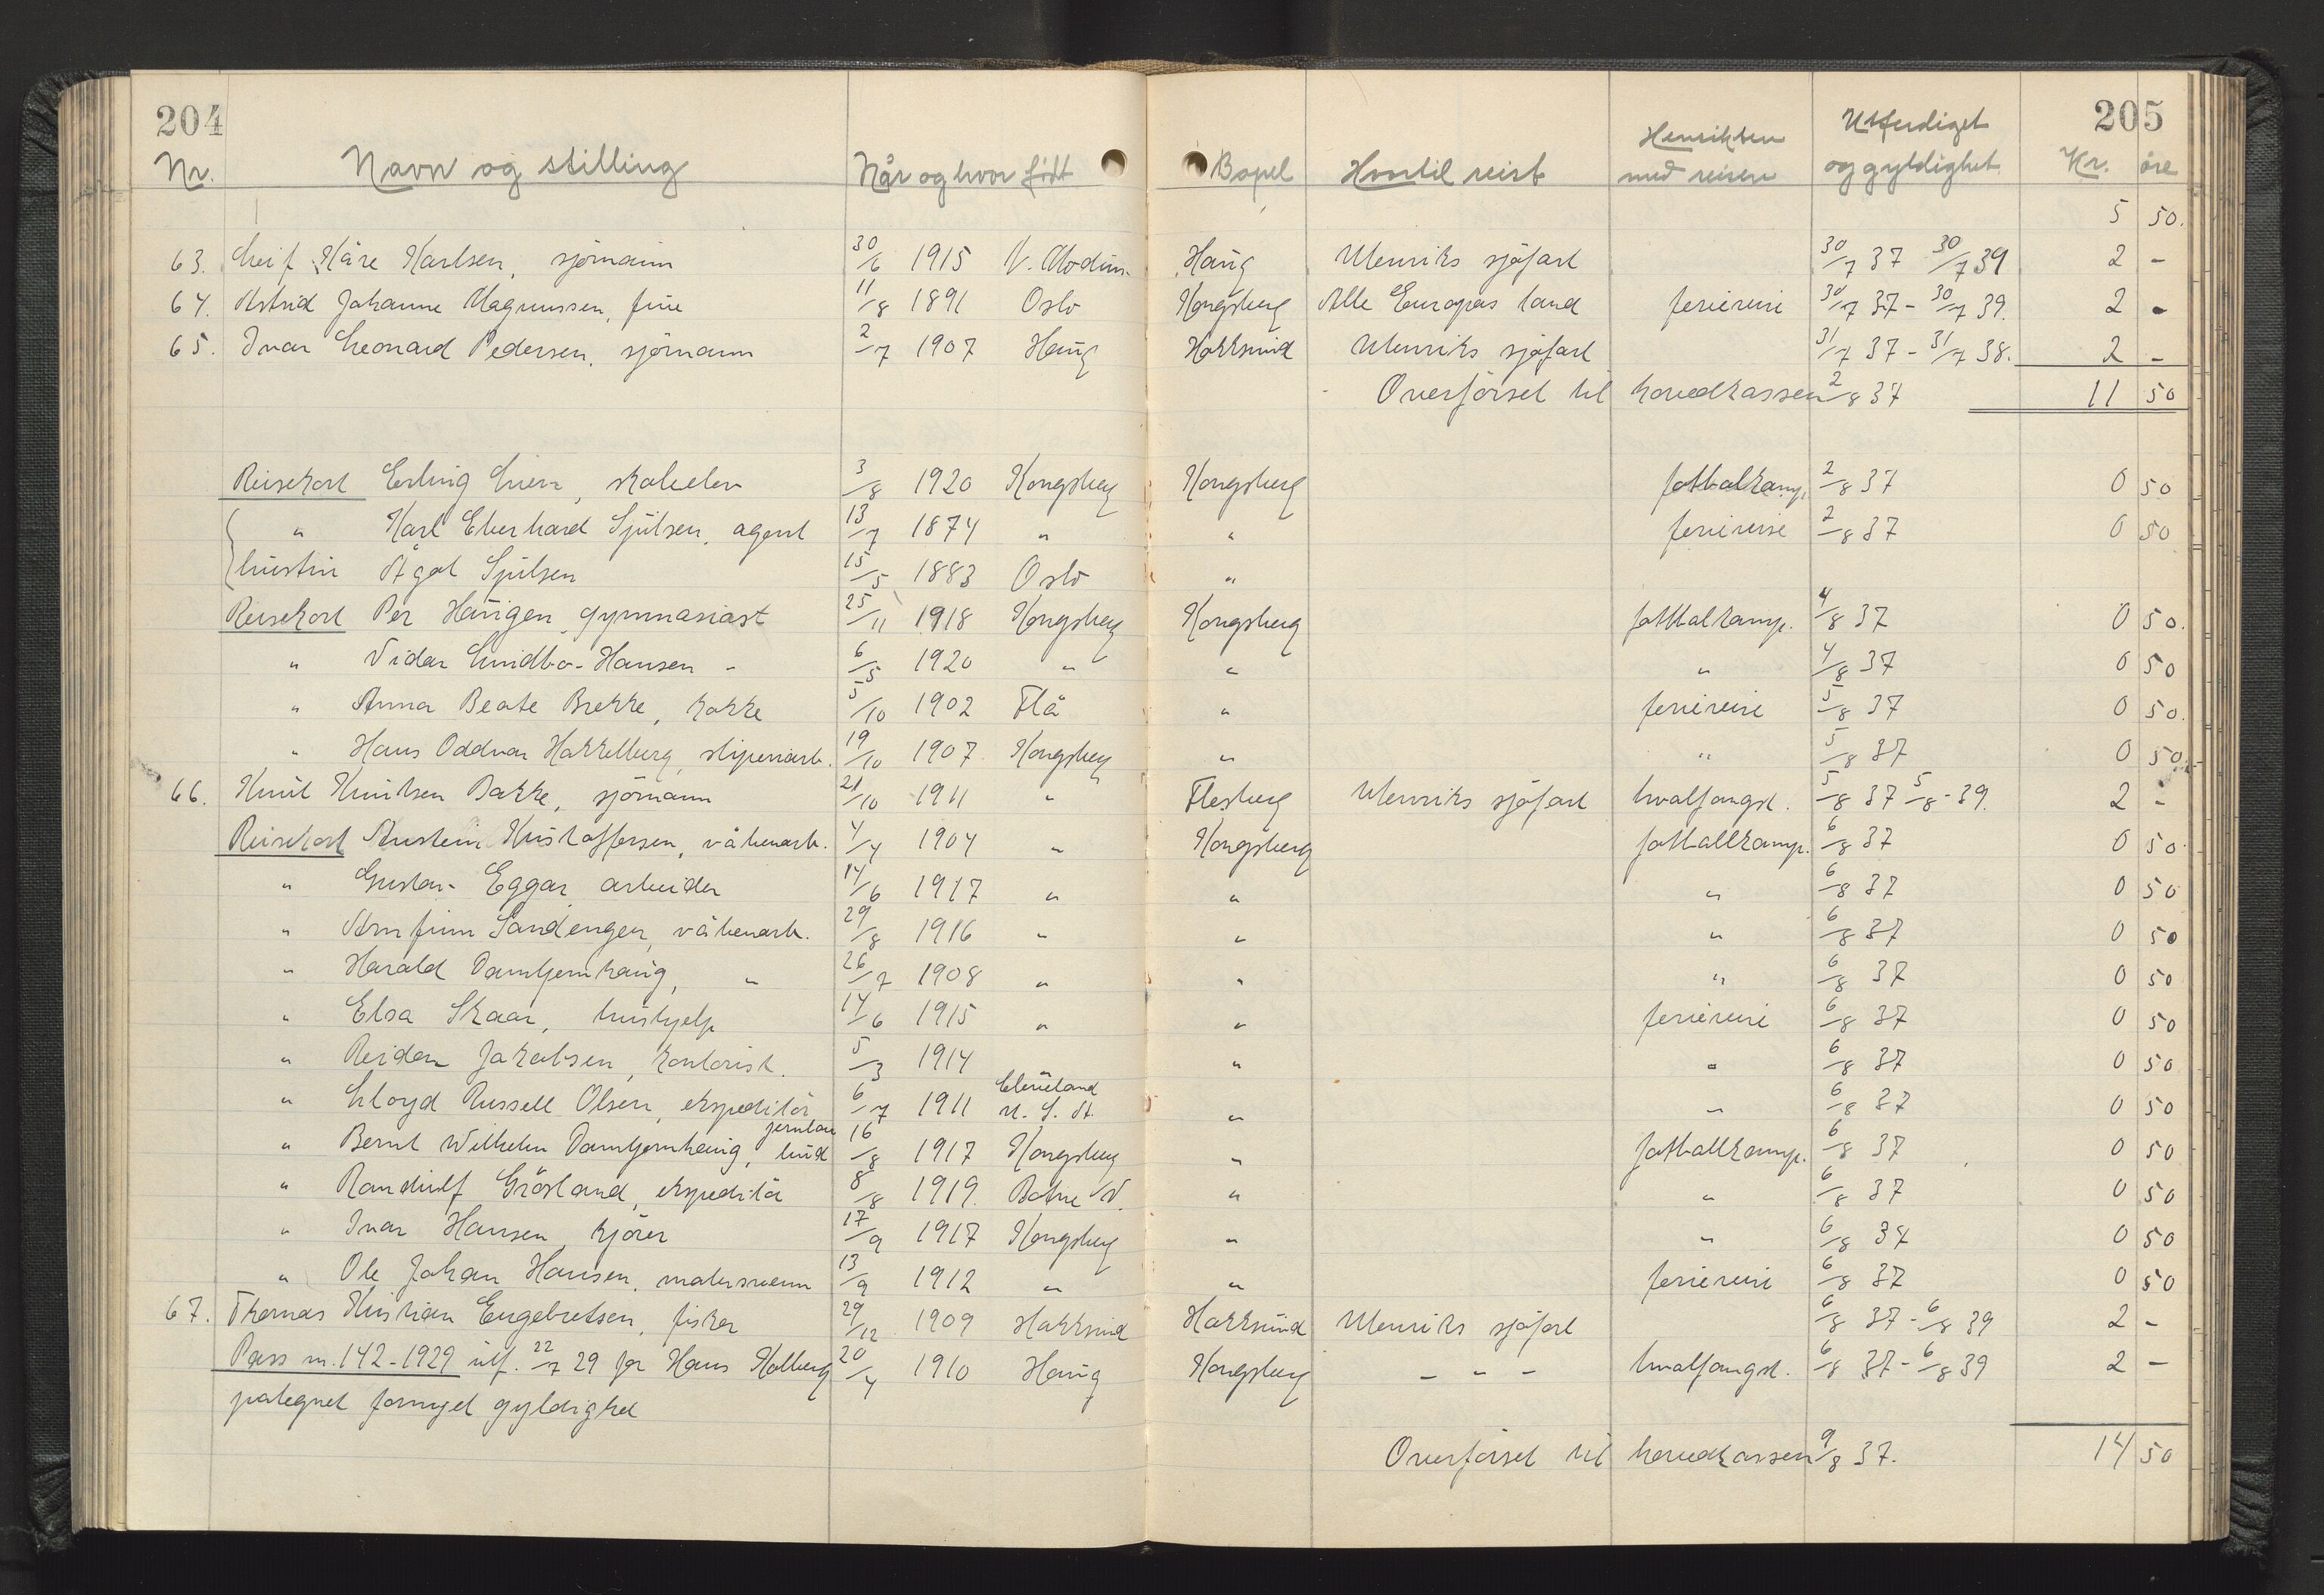 204 205
Nr. Navn og stilling Når og hvor født Bopel Hvortil reist Hensikten med reisen Utferdiget og gyldighet Kr. øre
5 50.
63. Leif Kåre Karlsen, sjømann 30/6 1915 V. Modum Haug Utenriks sjøfart 30/7 37 30/7 39 2 -
64. Astrid Johanne Magnussen, frue 11/8 1891 Oslo Kongsberg Alle Europas land feriereise 30/7 37 - 30/7 39. 2 -
65. Ivar Leonard Pedersen, sjømann 2/7 1907 Haug Hokksund Utenriks sjøfart 31/7 37 - 31/7 38. 2 -
Overførsel til hovedkassen 2/8 37 11 50
Reisekort Erling Lien, skoleelev 3/8 1920 Kongsberg Kongsberg fotbalkamp, 2/8 37 0 50
" Karl Eberhard Sjulsen, agent 13/7 1874 " " feriereise 2/8 37 0 50
hustru Ågot Sjulsen 15/5 1883 Oslo "
Reisekort Per Haugen, gymnasiast 25/11 1918 Kongsberg Kongsberg fotbalkamp. 4/8 37 0 50.
" Vidar Lundbo-Hansen - 6/5 1920 " " " 4/8 37 0 50
" Anna Beate Brekke, kokke 5/10 1902 Flå " feriereise 5/8 37 0 50.
" Hans Oddvar Hakkelberg, sliperiarb. 19/10 1907 Kongsberg " " 5/8 37 0 50.
66. Knut Knutsen Bakke, sjømann 21/10 1911 " Flesberg Utenriks sjøfart hvalfangst. 5/8 37 5/8-39. 2 -
Reisekort Austein Kristoffersen, våbenarb. 4/4 1904 " Kongsberg fotballkamp. 6/8 37 0 50.
" Gustav Eggar, arbeider 14/6 1917 " " " 6/8 37 0 50
" Arnfinn Sandengen, våbenarb. 29/8 1916 " " " 6/8 37 0 50
" Harald Damtjernhaug, " 26/7 1908 " " " 6/8 37 0 50
" Elsa Skaar, hushjelp 14/6 1915 " " feriereise 6/8 37 0 50
" Reidar Jakobsen, kontorist. 5/3 1914 " " 6/8 37 0 50
" Lloyd Russell Olsen, ekspeditør 6/7 1911 Cleveland U. S. A. " " 6/8 37 0 50
" Bernt Wilhelm Damtjernhaug, jernban bud 16/8 1917 Kongsberg " fotballkamp. 6/8 37 0 50
" Randulf Grøsland, ekspeditør 8/8 1919. Botne V. " " 6/8 37 0 50
" Ivar Hansen, kjører 17/9 1917 Kongsberg " " 6/8 37 0 50
" Ole Johan Hansen, malersvenn 13/9 1912 " " feriereise 6/8 37 0 50
67. Thomas Kristian Engebretsen, fisker 29/12 1909 Hokksund Hokksund Utenriks sjøfart 6/8 37 - 6/8 39 2 -
Pass nr. 142-1929 utf. 22/7 29 for Hans Kolberg 20/4 1910 Haug Kongsberg - - - hvalfangst. 6/8 37 - 6/8 39 2 -
påtegnet fornyet gyldighet
Overførsel til hovedkassen 9/8 37. 14 50